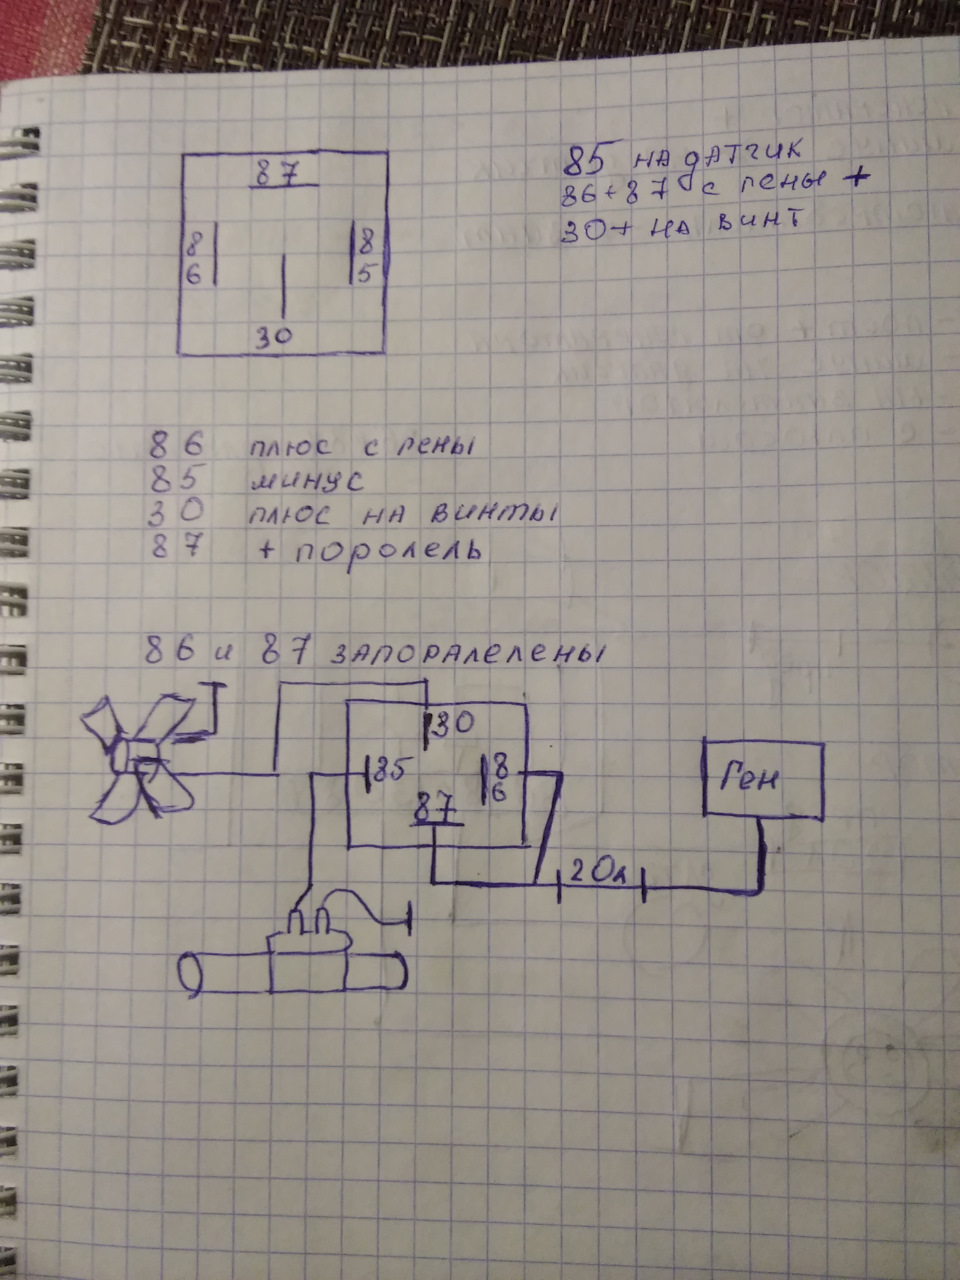 87
86
85
30
85 НА ДАТЧИК
86+87 С ГЕНЫ +
30+ НА ВИНТ
86 ПЛЮС С ГЕНЫ
85 МИНУС
30 ПЛЮС НА ВИНТЫ
87 + ПОРОЛЕЛЬ
86 и 87 ЗАПОРАЛЕЛЕНЫ
30
85
86
87
Ген
20А